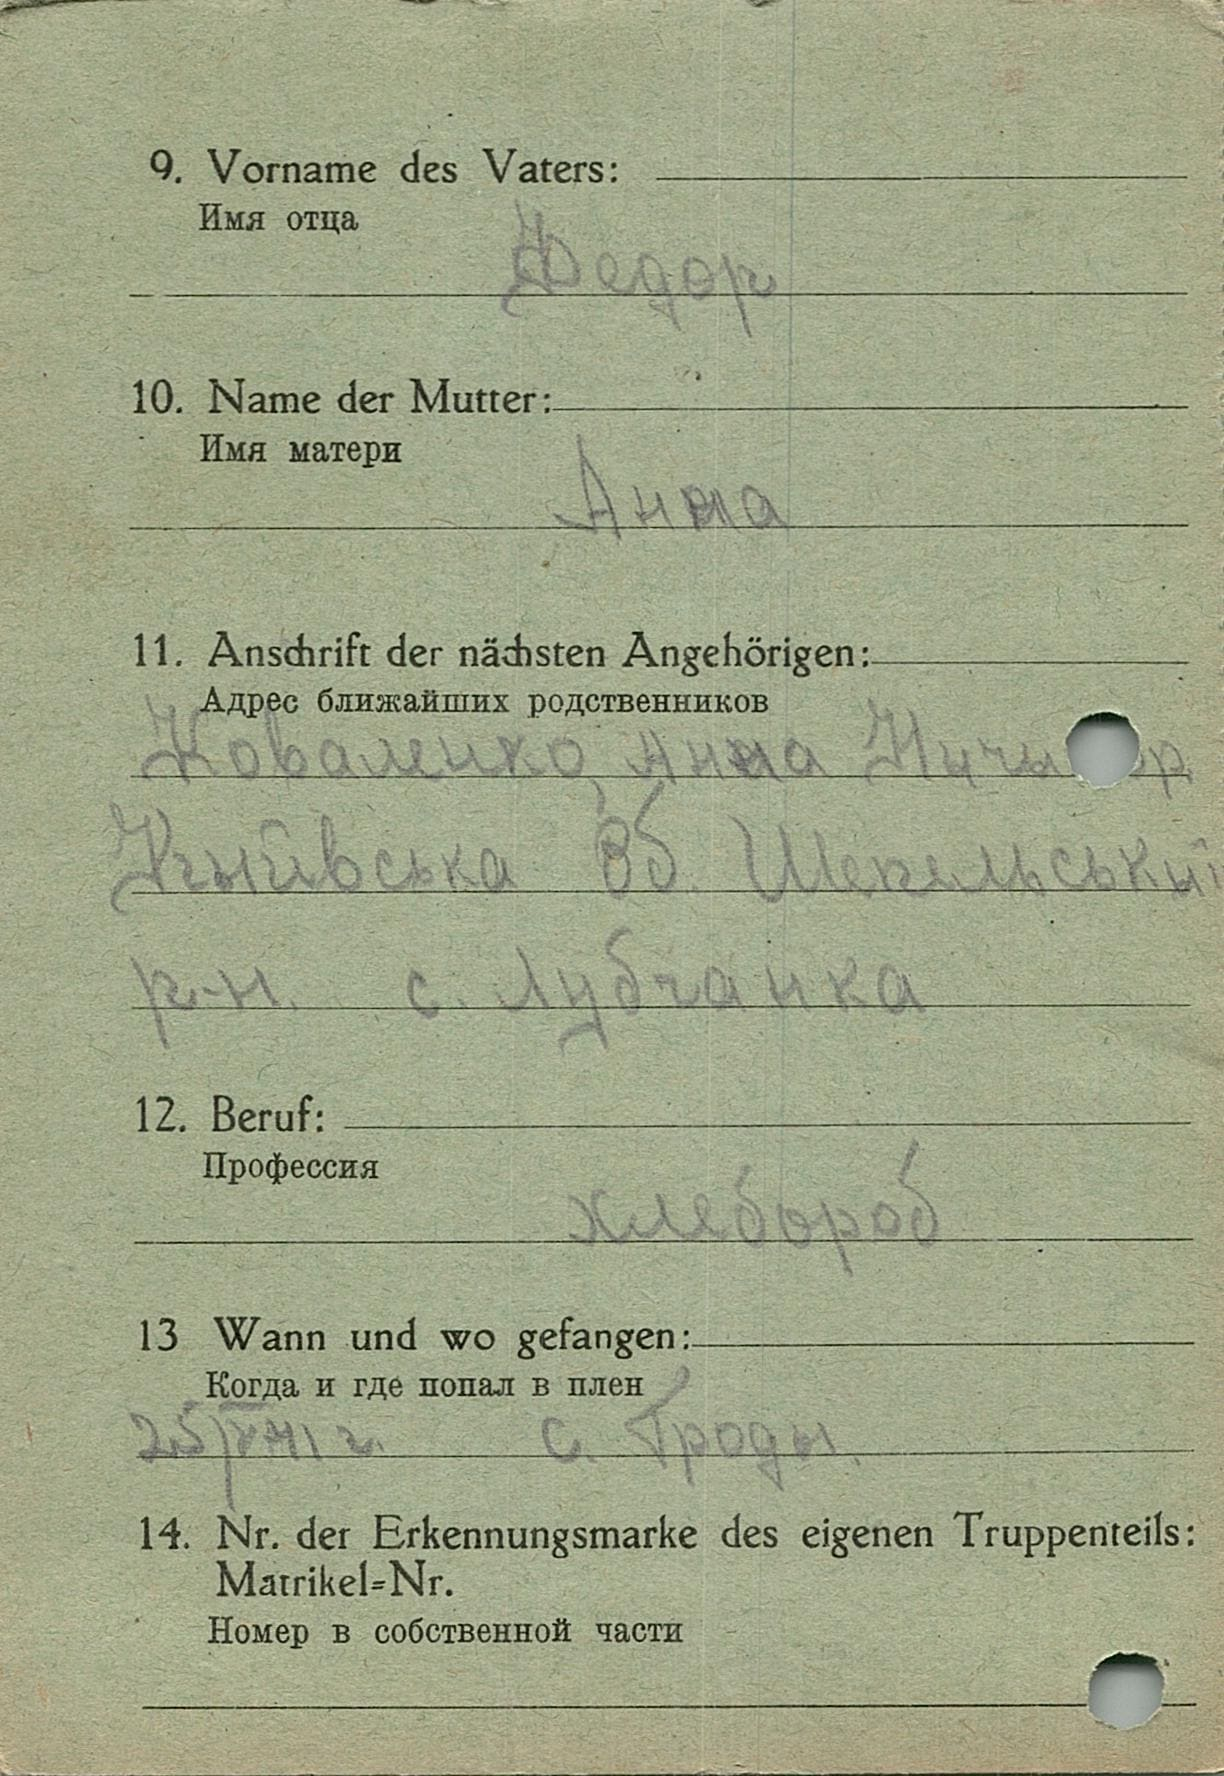 9. Vorname des Vaters:
Имя отца
Федор
10. Name der Mutter:
Имя матери
Анна
11. Anschrift der nächsten Angehörigen:
Адрес ближайших родственников
Коваленко Анна
Кыйвська Об.
р-н. с. Лубчанка
12. Beruf:
Профессия
хлебороб
13 Wann und wo gefangen:
Когда и где попал в плен
с. Гроды.
14. Nr. der Erkennungsmarke des eigenen Truppenteils:
Matrikel=Nr.
Номер в собственной части